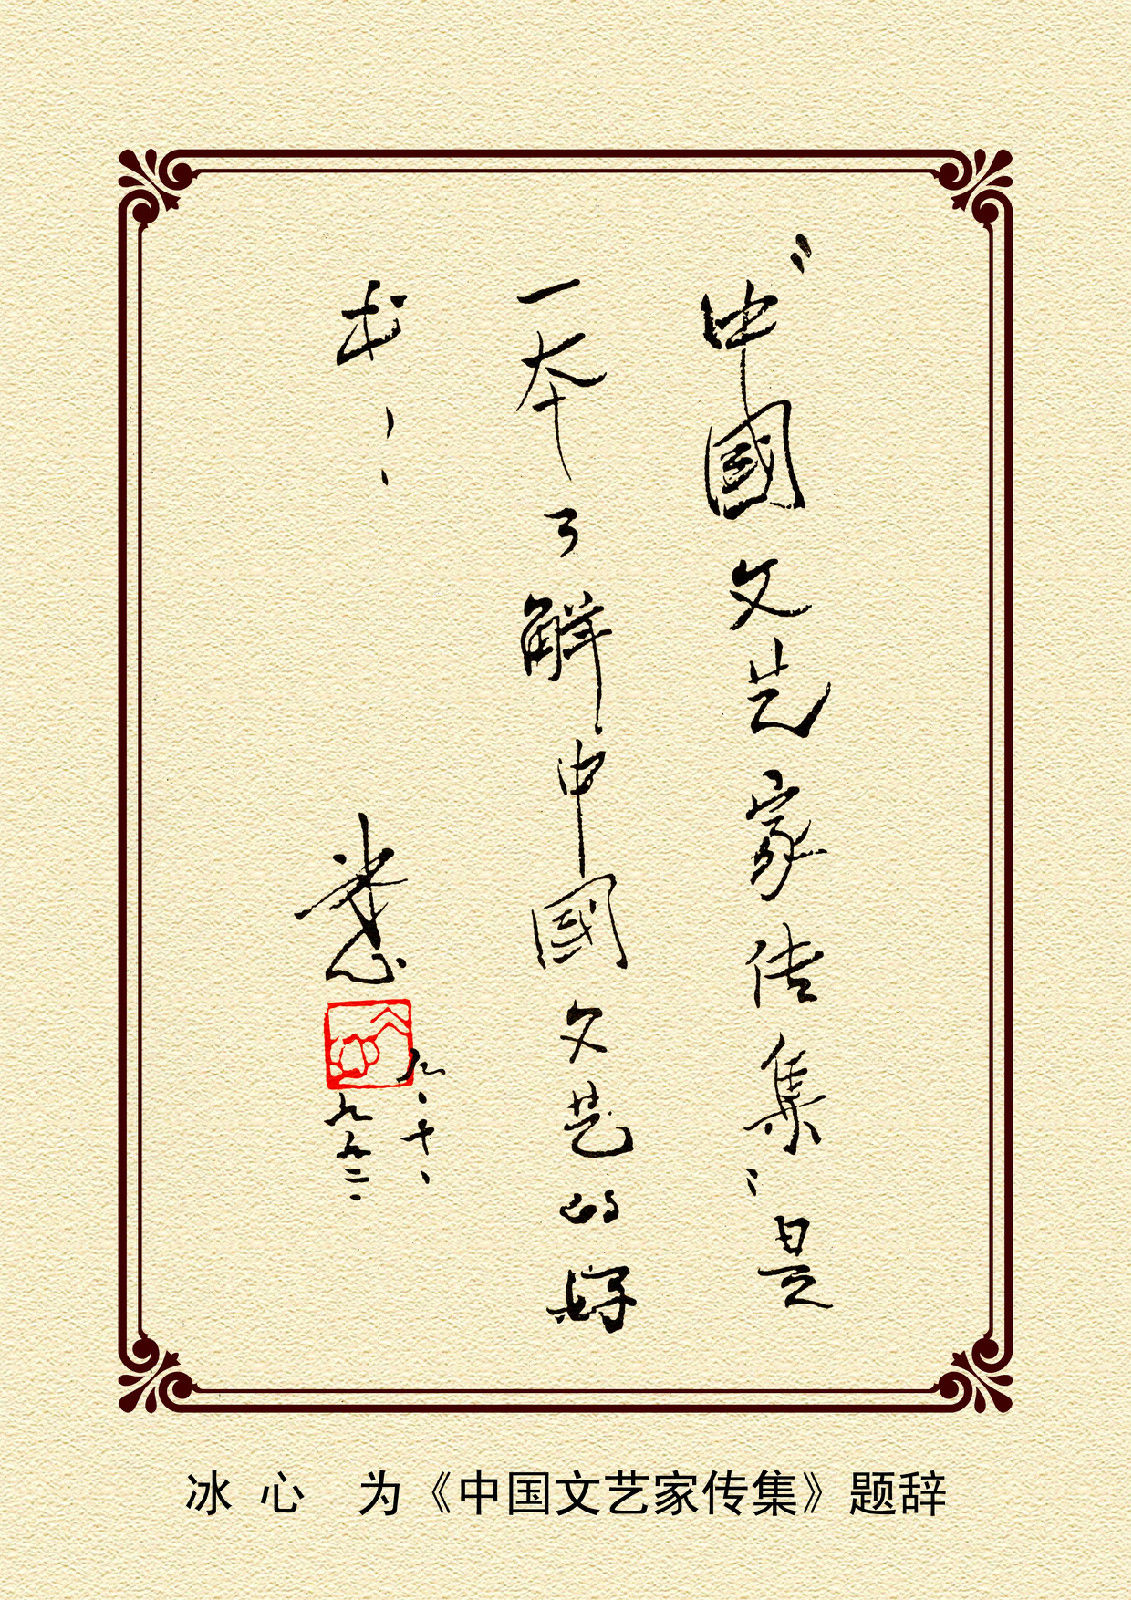 “中國文艺家传集”是
一本了解中國文艺的好
书！
冰心
九、十、
一九九二.
冰 心 为《中国文艺家传集》题辞